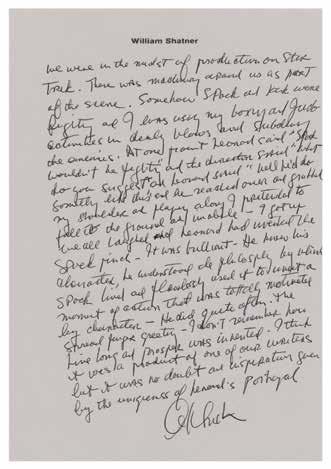 William Shatner
we were in the midst of production on Star
Trek. There was machinery around us as part
of the scene. Somehow Spock and Kirk were
fighting and I was using my boxing and Judo
activities in deadly blows and subduing
the enemies. At one point Leonard said "Spock
wouldn't be fighting" and the director said "what
do you suggest" and Leonard said "well he'd do
something like this" and he reached over and grabbed
my shoulder and playing along I pretended to
fall to the ground and I got up
we all laughed and Leonard had invented the
Spock pinch - It was brilliant - He knew his
character, he understood the philosophy by which
Spock lived and flawlessly used it to invent a
moment of action that was totally motivated
by character - He did quite often. The
spread finger greeting - I don't remember how
Live long and prosper was invented. I think
it was a product of one of our writers
but it was no doubt an inspiration given
by the uniqueness of Leonard's portrayal